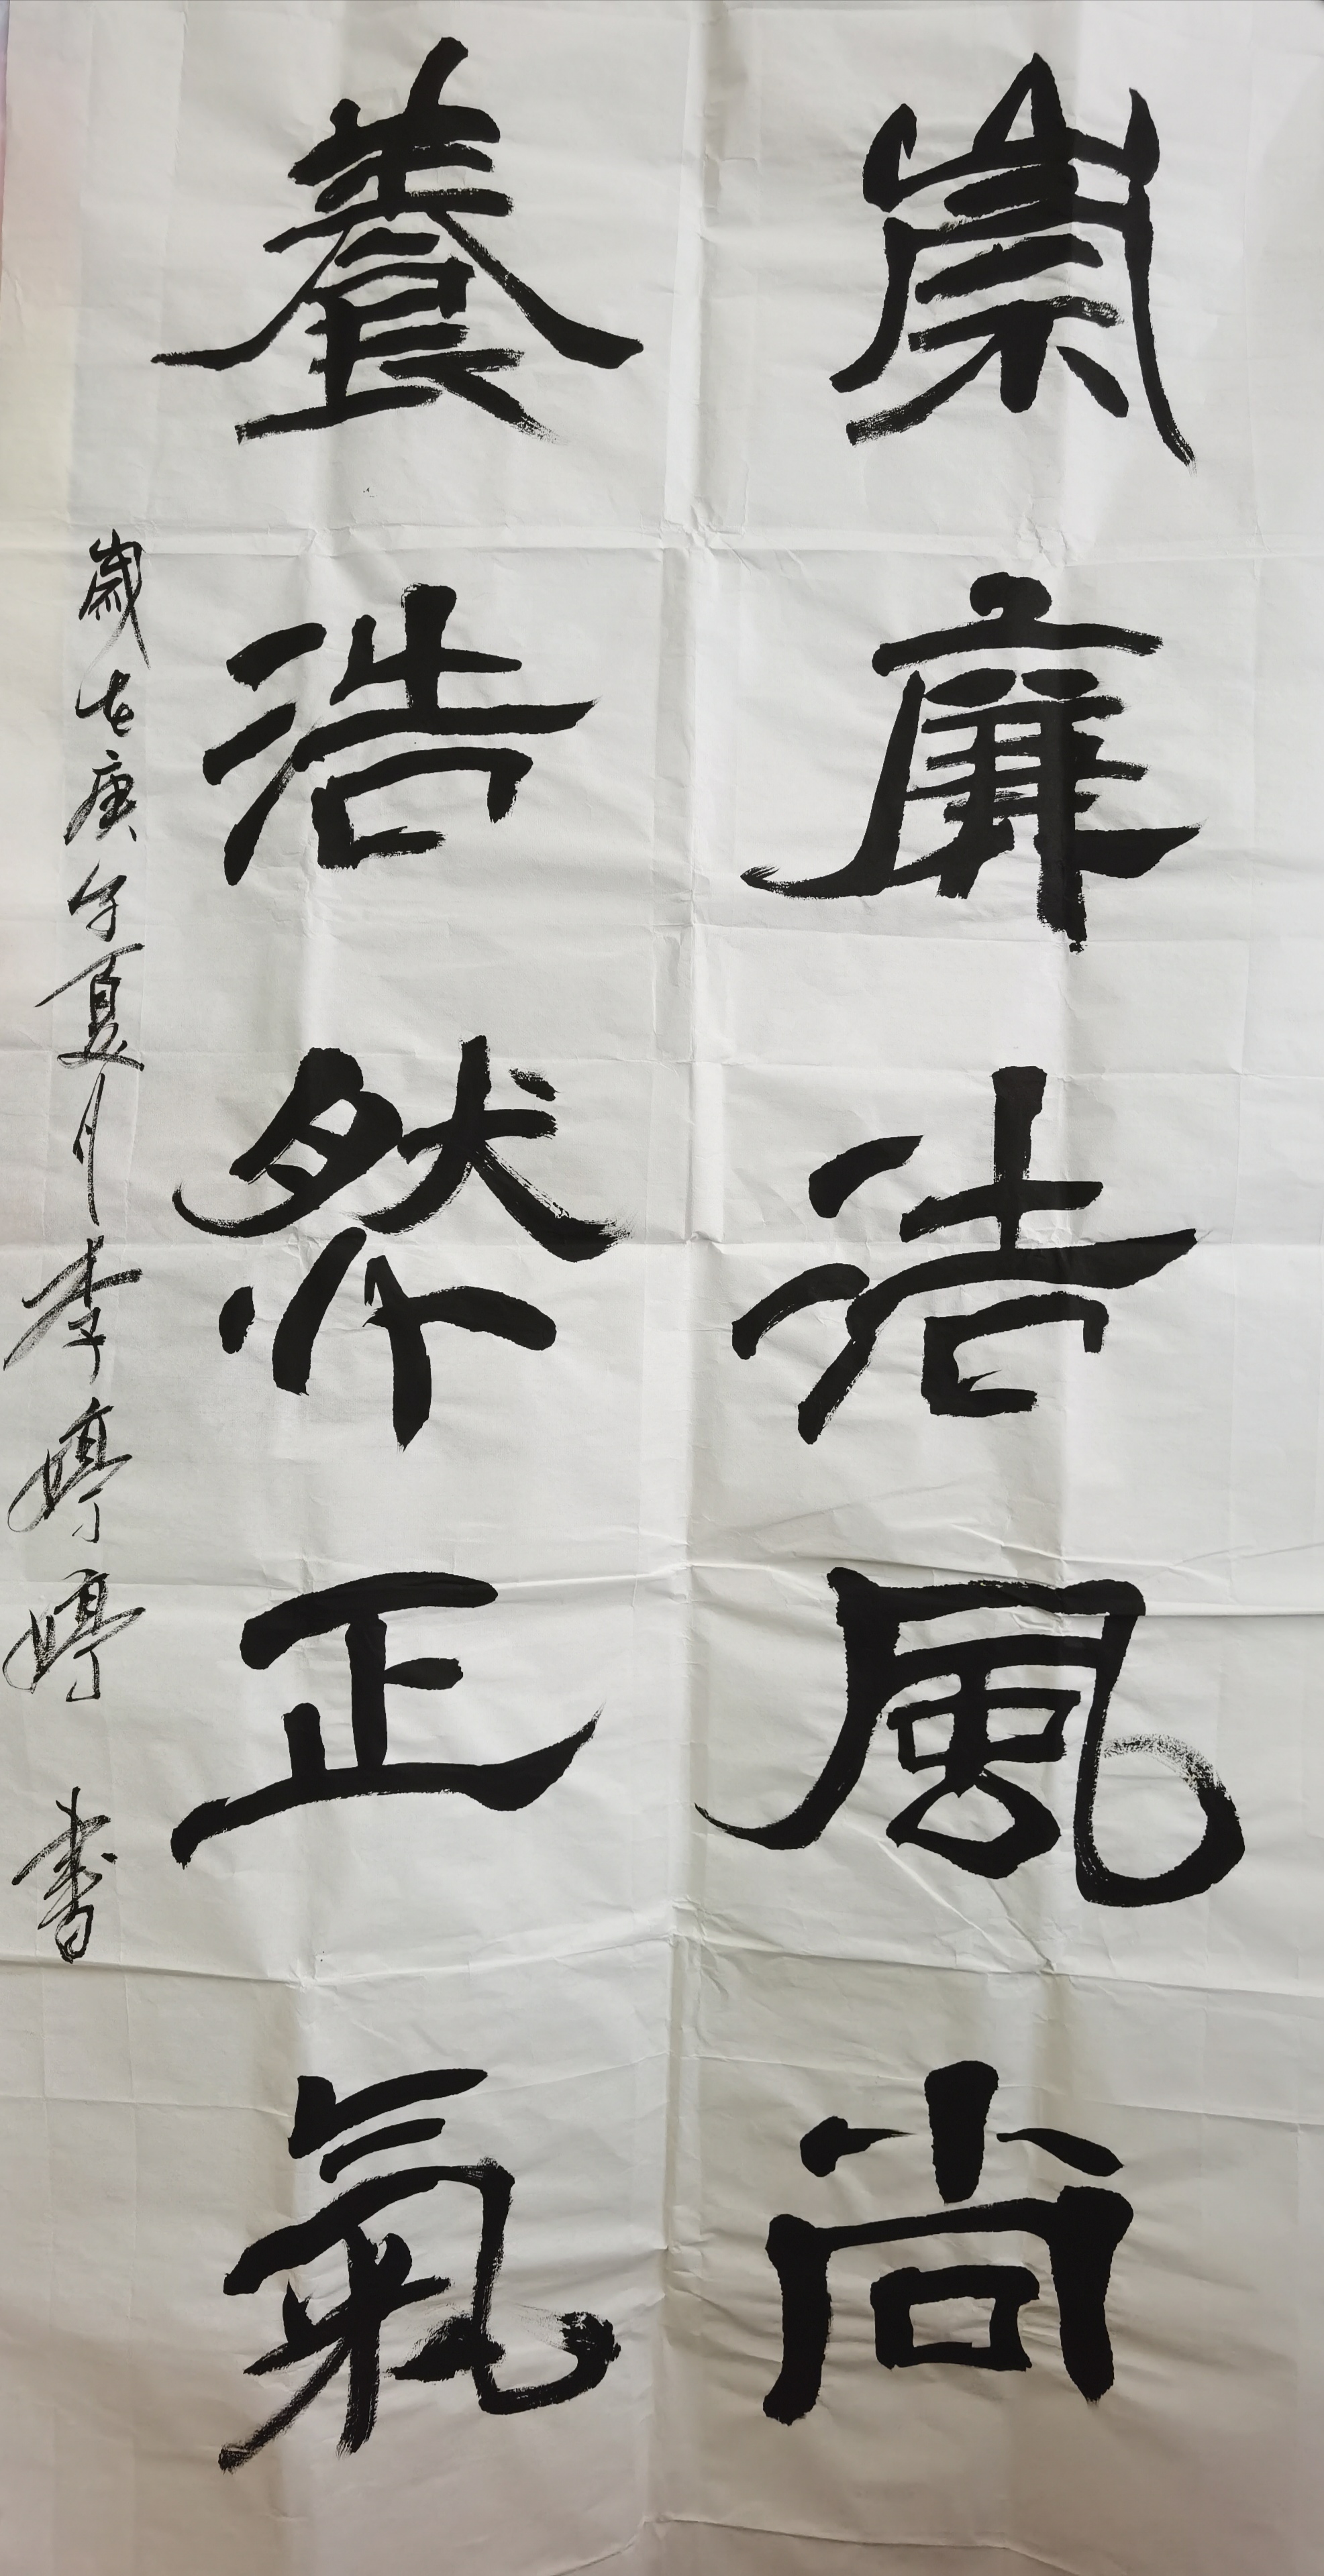 崇廉洁風尚
養浩然正氣
歲在庚子夏月李婷婷書